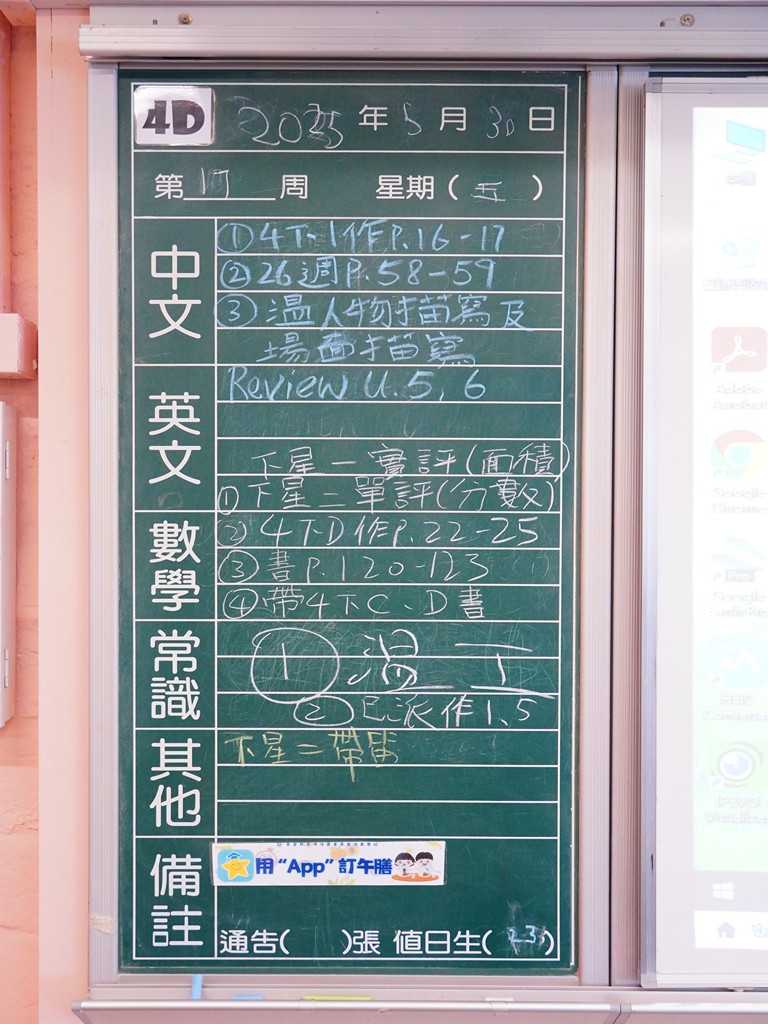 4D 2025年5月30日
第 周 星期(五)
中文
①4下-1作P.16-17
②26週P.58-59
③溫人物描寫及
場面描寫
英文
Review U.5,6
下星一實評(面積)
①下星二單評(分數)
數學
②4下D作P.22-25
③書P.120-123
④帶4下C、D書
常識
① 溫
②已派作1.5
其他
下星二帶
備註
用"App"訂午膳
通告( )張 值日生(23)